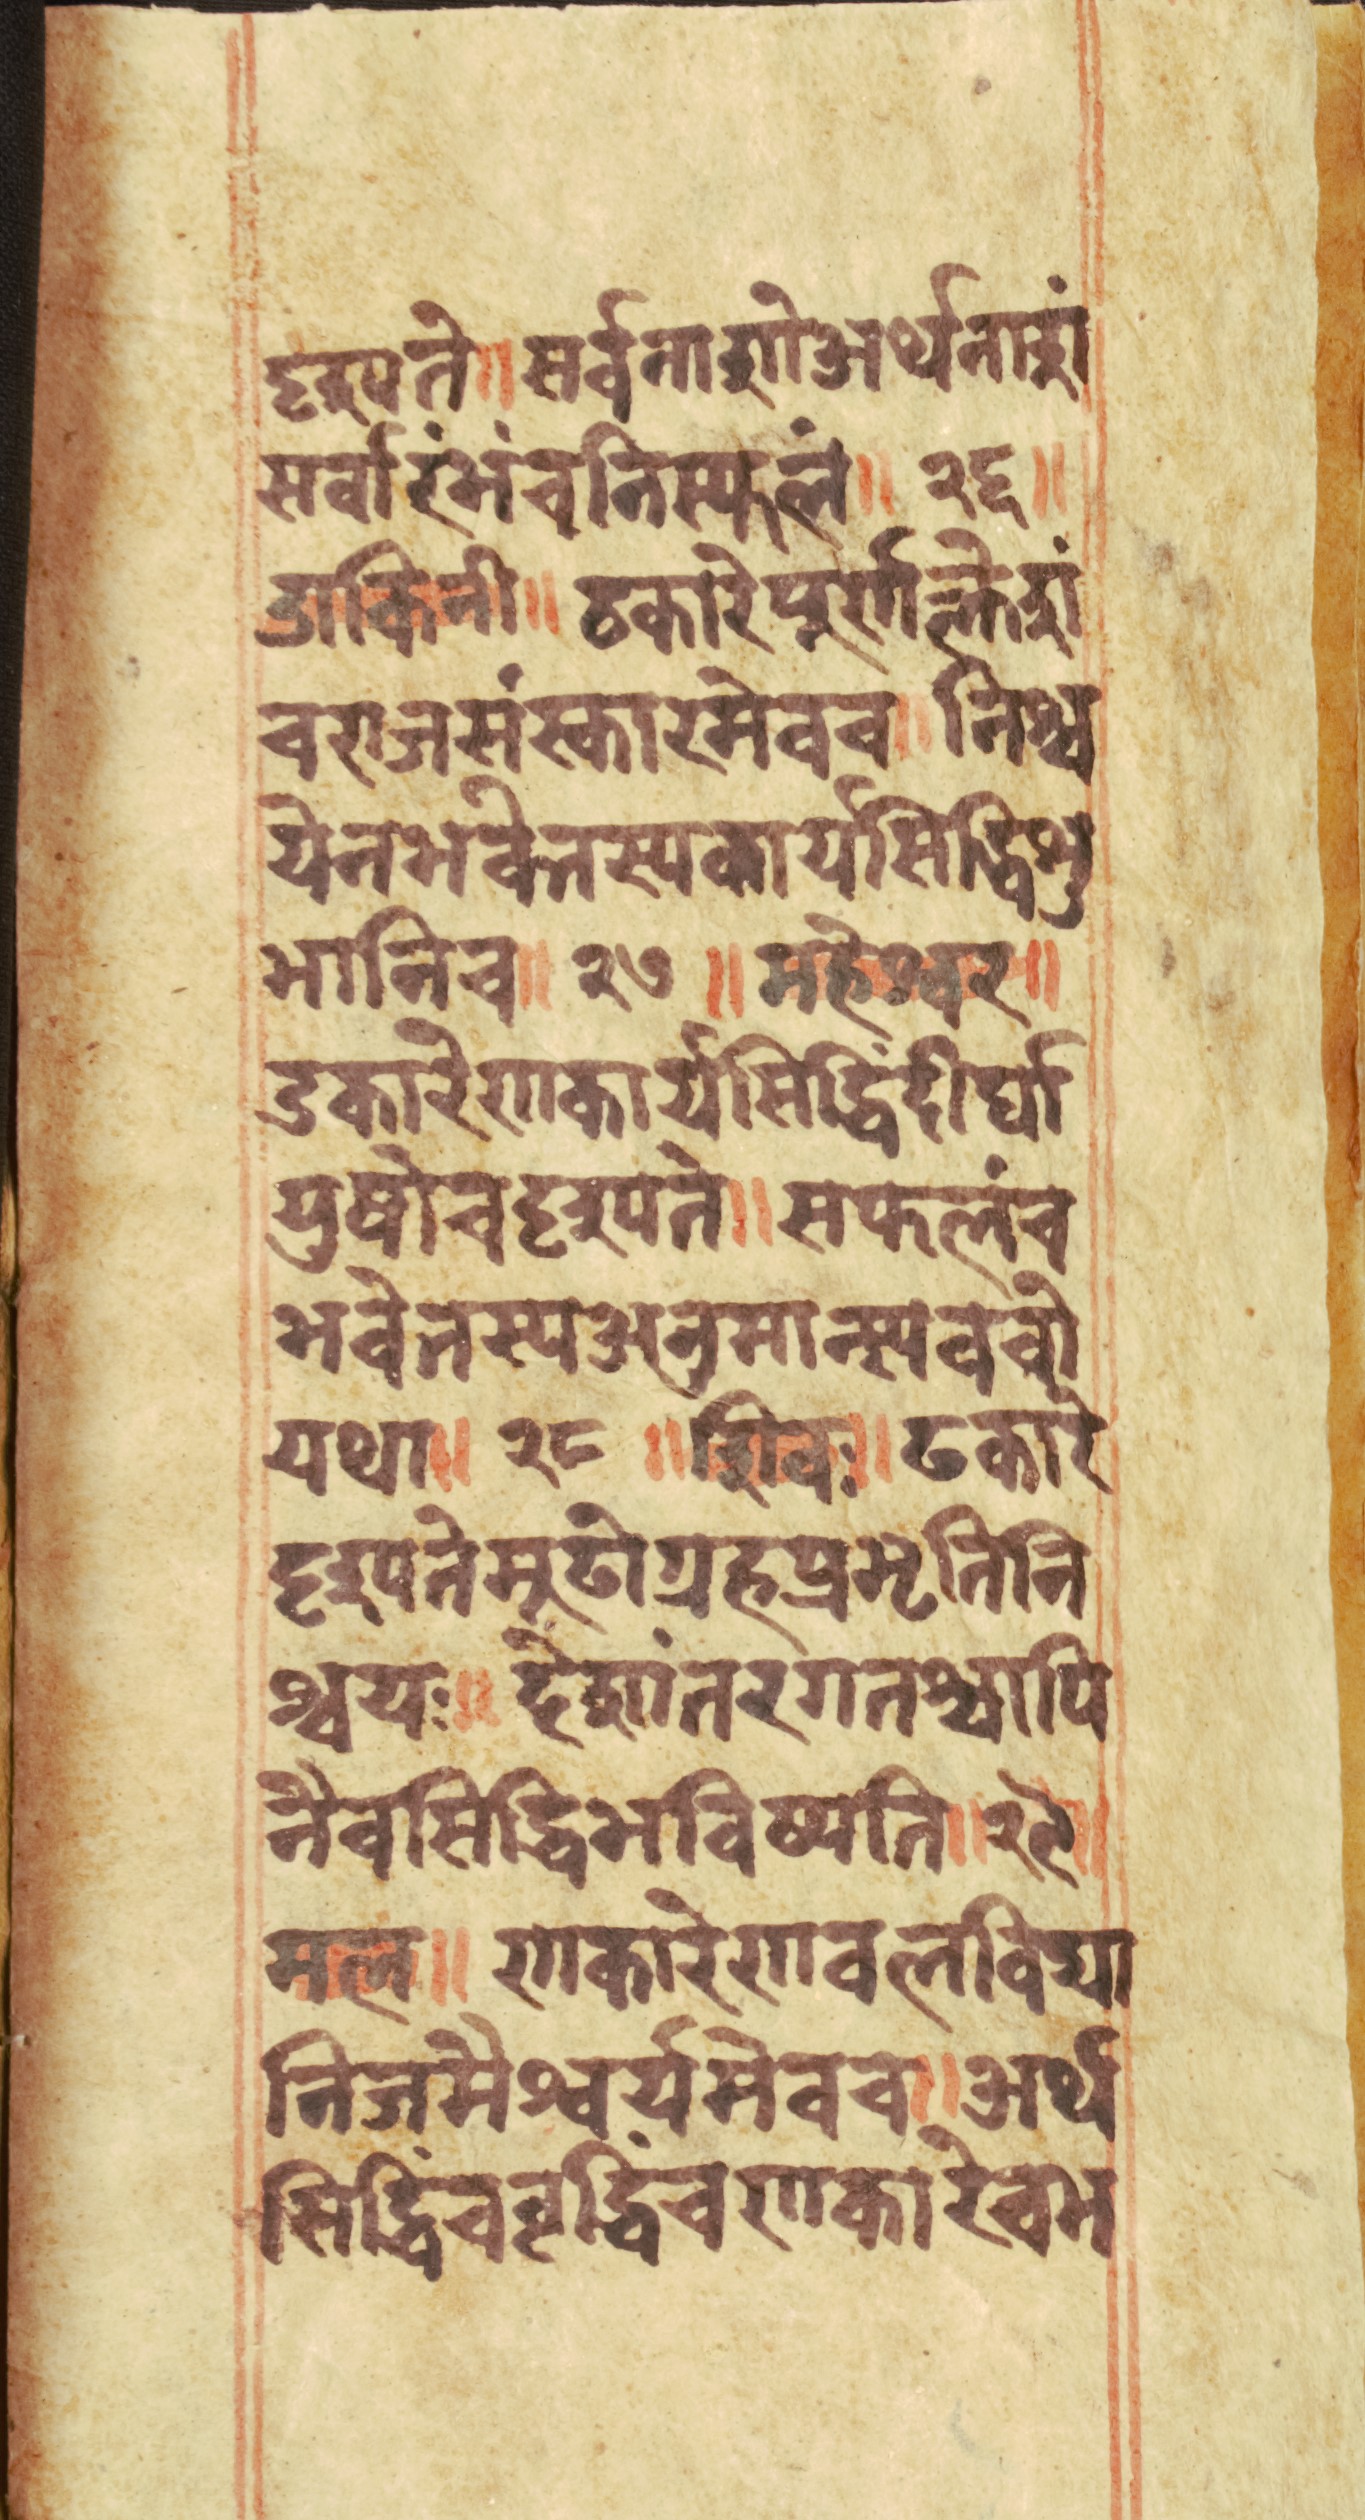 दृश्पते॥सर्वनाशोअर्थनाशं
सर्वारंभंचनिस्फलं॥२६॥
डाकिनी॥ठकारेपुर्णाल्केशं
चराजसंस्कारमेवच॥निश्च
येनभवेत्तस्यकार्यसिद्धिशु
भानिच॥२७॥महेश्वर॥
डकारेणकार्यसिद्धिंदीर्घा
युषोचदृश्पते॥सफलंच
भवेत्तस्यअनुमान्स्यववो
यथा॥२८॥शिवः॥ढकारे
दृश्पतेमूढोग्रहप्रभृतिनि
श्चयः॥देशांतरगतश्चापि
नैवसिद्धिभविष्यति॥२९॥
मल॥णकारेणवलविद्या
निजमैश्वर्यमेवच॥अर्थ
सिद्धिंचवृद्धिंचणकारेचभ